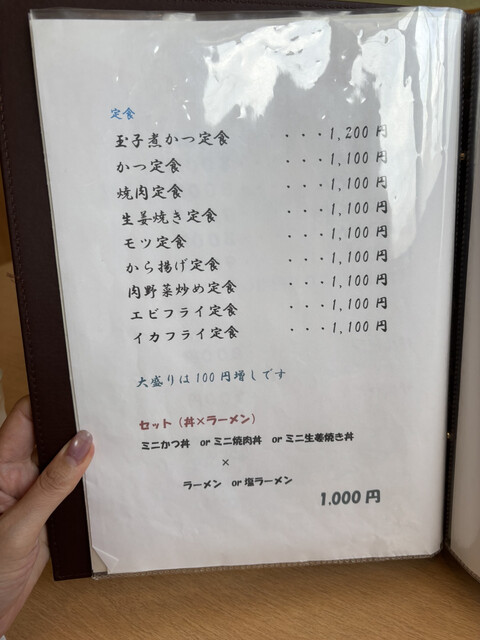 定食
玉子煮かつ定食 ・・・1,200円
かつ定食 ・・・1,100円
焼肉定食 ・・・1,100円
生姜焼き定食 ・・・1,100円
モツ定食 ・・・1,100円
から揚げ定食 ・・・1,100円
肉野菜炒め定食 ・・・1,100円
エビフライ定食 ・・・1,100円
イカフライ定食 ・・・1,100円
大盛りは100円増しです
セット（丼×ラーメン）
ミニかつ丼 orミニ焼肉丼 orミニ生姜焼き丼
×
ラーメン or塩ラーメン
1.000円